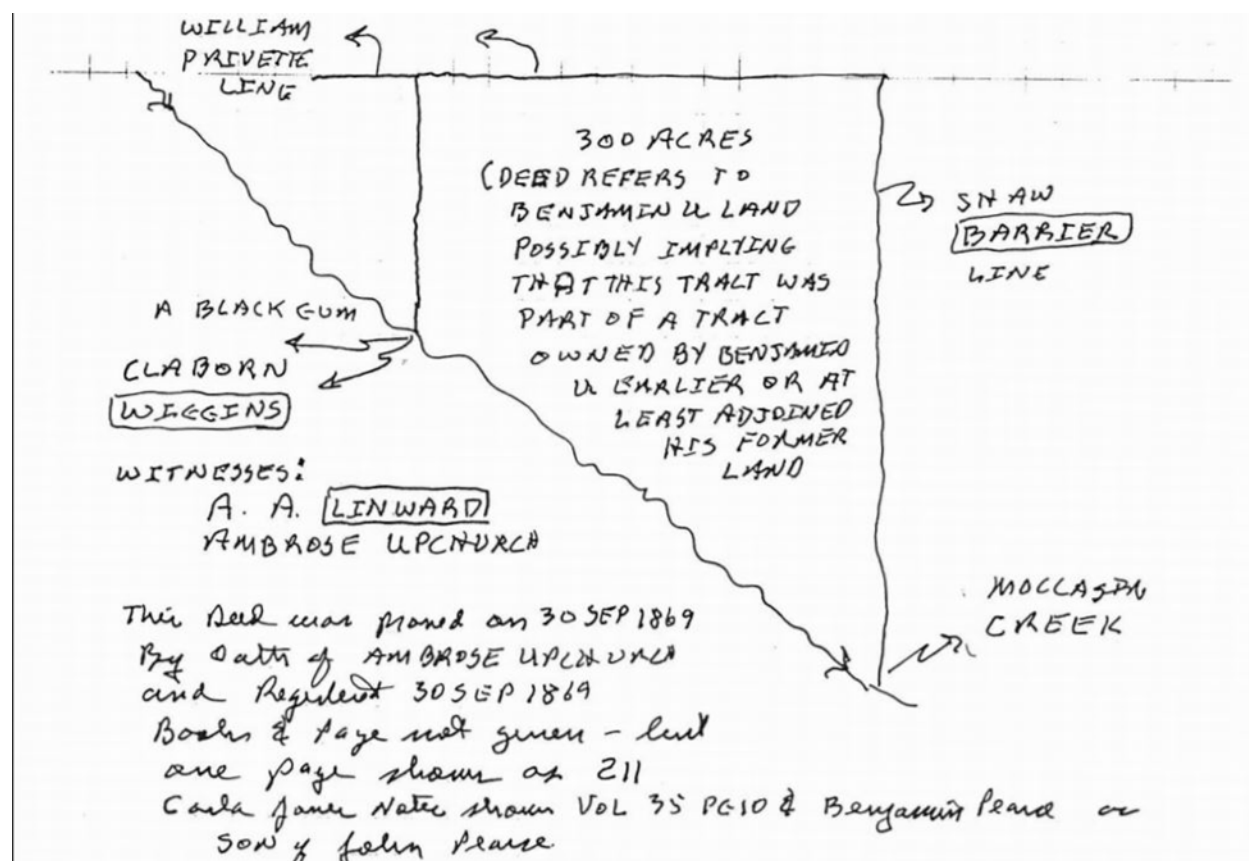 WILLIAM
PRIVETTE
LINE
300 ACRES
(DEED REFERS TO
BENJAMIN U LAND
POSSIBLY IMPLYING
THAT THIS TRACT WAS
PART OF A TRACT
OWNED BY BENJAMIN
U EARLIER OR AT
LEAST ADJOINED
HIS FORMER
LAND
SHAW
BARRIER
LINE
A BLACK GUM
CLABORN
WIGGINS
WITNESSES:
A. A. LINWARD
AMBROSE UPCHURCH
MOLLASIN
CREEK
This Deed was proved on 30 SEP 1869
By Oath of AMBROSE UPCHURCH
and Registered 30 SEP 1869
Books & Page not given - but
one page shown as 211
Carla Jones Notes shows VOL 35 PG 10 & Benjamin Pearce as
SON of John Pearce